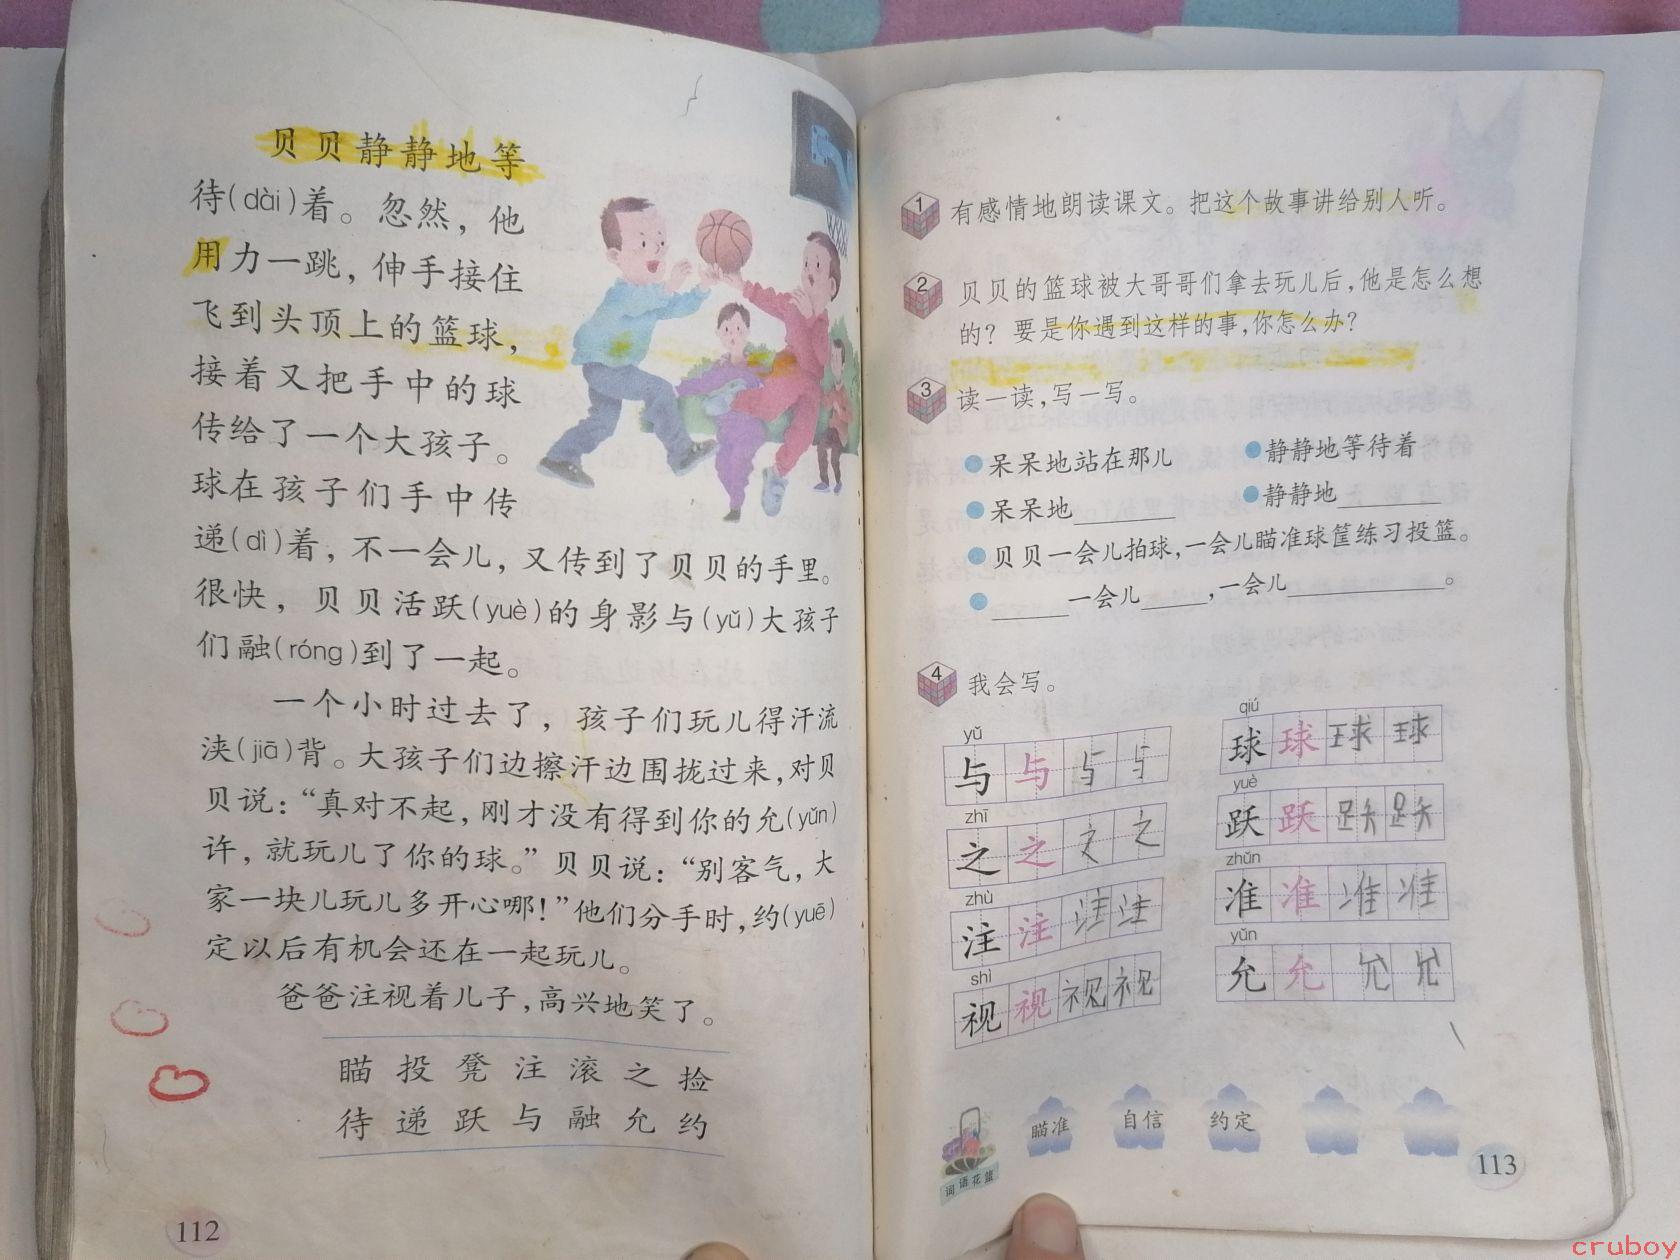 贝贝静静地等
待(dài)着。忽然，他
用力一跳，伸手接住
飞到头顶上的篮球，
接着又把手中的球
传给了一个大孩子。
球在孩子们手中传
递(dì)着，不一会儿，又传到了贝贝的手里。
很快，贝贝活跃(yuè)的身影与(yǔ)大孩子
们融(róng)到了一起。
一个小时过去了，孩子们玩儿得汗流
浃(jiā)背。大孩子们边擦汗边围拢过来，对贝
贝说：“真对不起，刚才没有得到你的允(yǔn)
许，就玩儿了你的球。”贝贝说：“别客气，大
家一块儿玩儿多开心哪！”他们分手时，约(yuē)
定以后有机会还在一起玩儿。
爸爸注视着儿子，高兴地笑了。
瞄 投 凳 注 滚 之 捡
待 递 跃 与 融 允 约
112
1 有感情地朗读课文。把这个故事讲给别人听。
2 贝贝的篮球被大哥哥们拿去玩儿后，他是怎么想
的？要是你遇到这样的事，你怎么办？
3 读一读，写一写。
呆呆地站在那儿 静静地等待着
呆呆地________ 静静地________
贝贝一会儿拍球，一会儿瞄准球筐练习投篮。
______一会儿_____，一会儿____________。
4 我会写。
yǔ qiú
与 与 与 与 球 球 球 球
zhī yuè
之 之 之 之 跃 跃 跃 跃
zhù zhǔn
注 注 注 注 准 准 准 准
shì yǔn
视 视 视 视 允 允 允 允
词语花篮 瞄准 自信 约定
113
cruboy